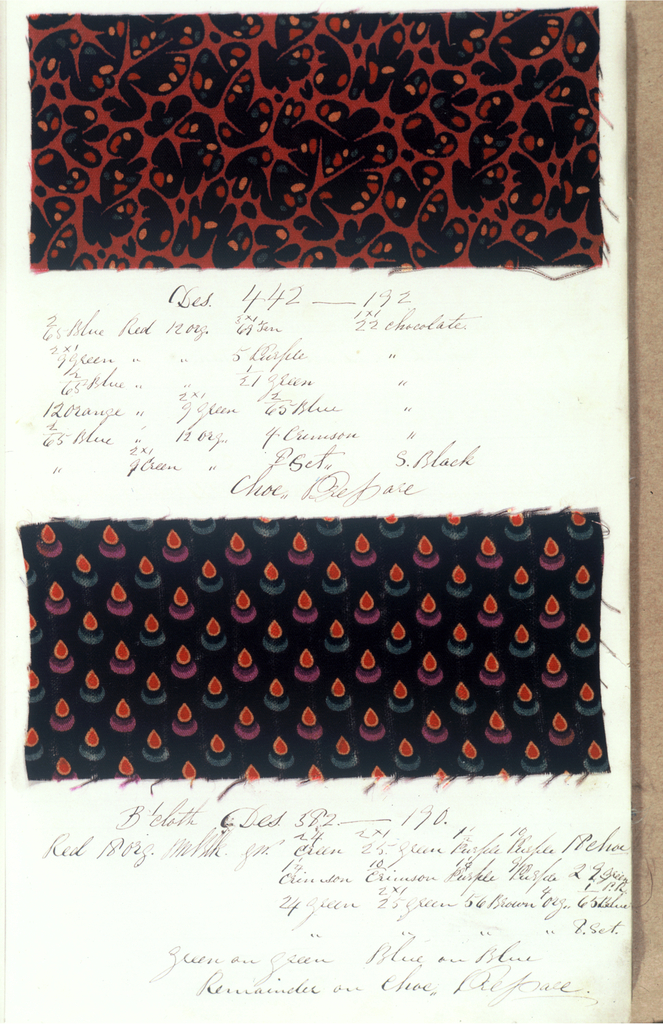 Des. 442 — 192
2/65 Blue Red 12 org. 2x1 1x1 22 chocolate.
2x1 9 green " " 5 Purple "
1/2 65 Blue " " 1/21 green "
12 orange " 2x1 9 green 1/2 65 Blue "
2/65 Blue " 12 org. 4 Crimson "
" 2x1 9 Green " Set " S. Black
Choc,, Prepare
B cloth Des 382 — 190.
Red 18 org. green 2x1 25 green Purple Purple 18 choc
Crimson Crimson Purple Purple 29 green
24 green 2x1 25 green 56 Brown 4 org. 65 Blue
" " " " Set.
Green on Green Blue on Blue
Remainder on Choc,, Prepare.